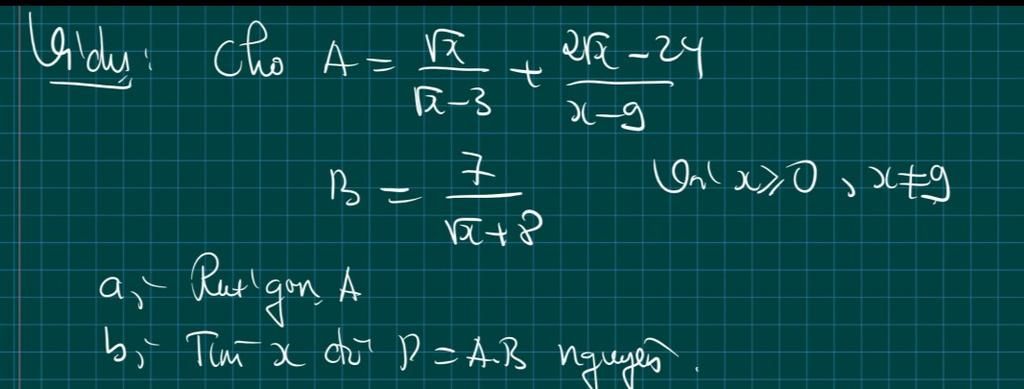 Ví dụ: Cho A = √x/(√x-3) + (2√x-24)/(x-9)
B = 7/(√x+8) Với x ≥ 0, x ≠ 9
a, Rút gọn A
b, Tìm x để P = A.B nguyên.